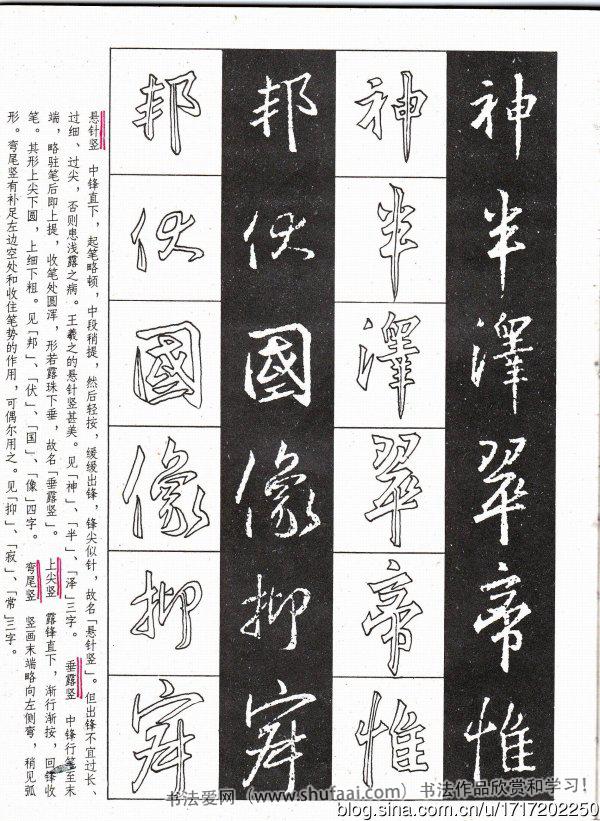 神半澤翠帝惟
神半澤翠帝惟
邦伏國像抑寂
邦伏國像抑寂
悬针竖 中锋直下，起笔略顿，中段稍提，然后轻按，缓缓出锋，锋尖似针，故名「悬针竖」。但出锋不宜过长、
过细、过尖，否则患浅露之病。王羲之的悬针竖甚美。见「神」、「半」、「泽」三字。 垂露竖 中锋行笔至末
端，略驻笔后即上提，收笔处圆浑，形若露珠下垂，故名「垂露竖」。 上尖竖 露锋直下，渐行渐按，回锋收
笔。其形上尖下圆，上细下粗。见「邦」、「伏」、「国」、「像」四字。 弯尾竖 竖画末端略向左侧弯，稍见弧
形。弯尾竖有补足左边空处和收住笔势的作用，可偶尔用之。见「抑」、「寂」、「常」三字。
书法爱网（www.shufaai.com）书法作品欣赏和学习！
blog.sina.com.cn/u/1717202250